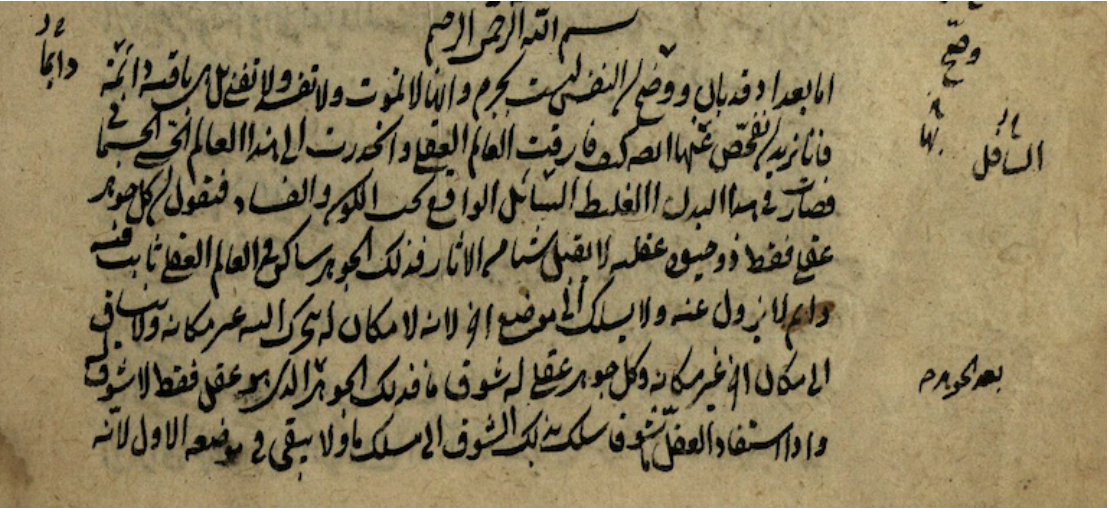 بسم الله الرحمن الرحيم
اما بعد اذ قد بان ووضح ان النفس ليست بجرم وانها لا تموت ولا تفسد ولا تفنى بل هى باقية دائمة
فانا نريد ان نفحص عنها ايضا كيف فارقت العالم العقلى وانحدرت الى هذا العالم الحسى الجسمانى
فصارت فى هذا البدن الغليظ السائل الواقع تحت الكون والفساد فنقول ان كل جوهر
عقلى فقط ذو حيوة عقلية لا يقبل شيئا من الاثار فذلك الجوهر ساكن فى العالم العقلى ثابت فيه
دايم لا يزول عنه ولا يسلك الى موضع اخر لانه لا مكان له يتحرك اليه غير مكانه ولا يشتاق
الى مكان اخر غير مكانه وكل جوهر عقلى له شوق ما فذلك الجوهر الذى هو عقل فقط لا شوق له
واذا استفاد العقل شوقا ما سلك بذلك الشوق الى مسلك ما ولا يبقى فى موضعه الاول لانه
وضح
دايما
السافل
بعد الجوهر م